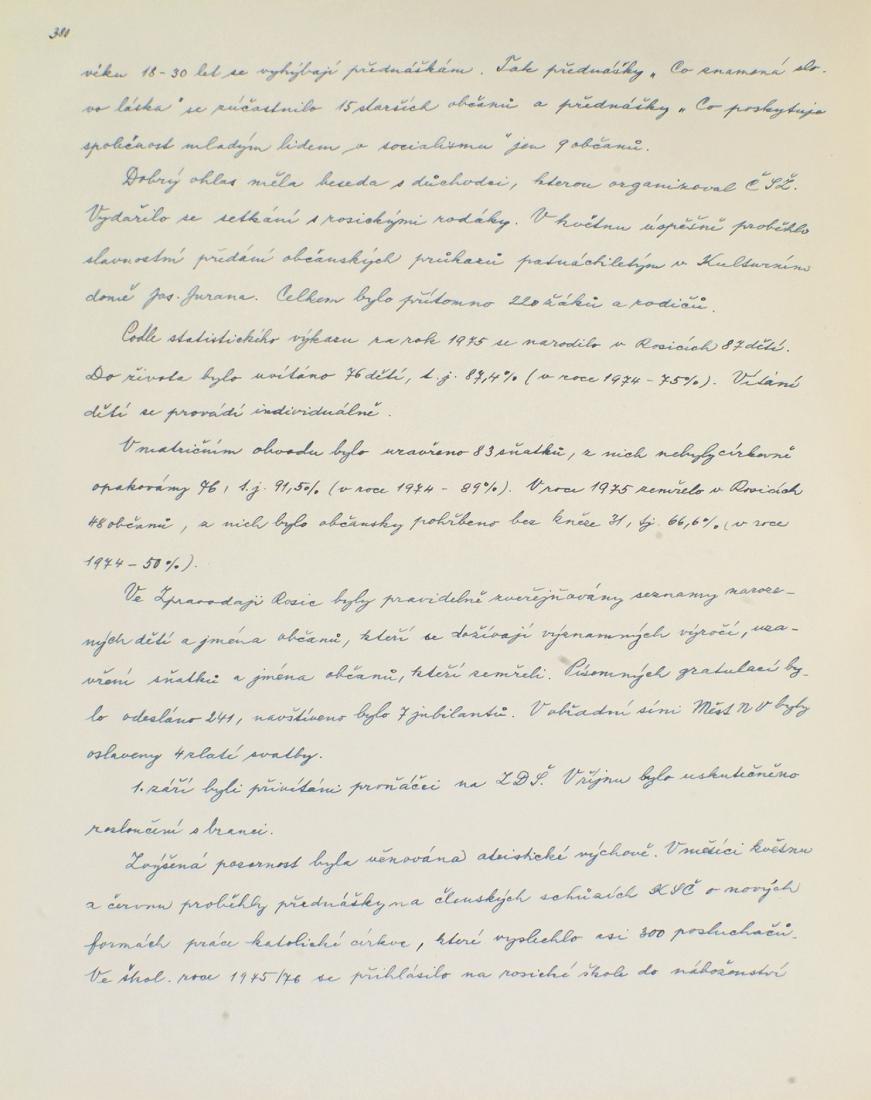 380
věku 18-30 let se vyhýbají přednáškám. Tak přednášky „Co znamená slo-
vo láska" se zúčastnilo 15 starších občanů a přednášky „Co poskytuje
společnost mladým lidem v socialismu" jen 9 občanů.
Dobrý ohlas měla beseda s důchodci, kterou organizoval ČSŽ.
Vydařilo se setkání s rosickými rodáky. V květnu úspěšně proběhlo
slavnostní předání občanských průkazů patnáctiletým v Kulturním
domě Jos. Jurana. Celkem bylo přítomno 220 žáků a rodičů.
Podle statistického výkazu za rok 1975 se narodilo v Rosicích 87 dětí.
Do života bylo uvítáno 76 dětí, t.j. 87,4% (v roce 1974 - 75%). Vítání
dětí se provádí individuálně.
V matričním obvodu bylo uzavřeno 83 sňatků, z nich nebyly církevně
opakovány 76, t.j. 91,5% (v roce 1974 - 89%). V roce 1975 zemřelo v Rosicích
48 občanů, z nich bylo občansky pohřbeno bez kněze 31, tj. 66,6% (v roce
1974 - 50%).
Ve Zpravodaji Rosic byly pravidelně zveřejňovány seznamy naroze-
ných dětí a jména občanů, kteří se dožívají významných výročí, uza-
vření sňatků a jména občanů, kteří zemřeli. Písomných gratulací by-
lo odesláno 241, navštíveno bylo 7 jubilantů. V obřadní síni Měst N V byly
oslaveny 4 zlaté svatby.
1. září byli přivítáni prvňáčci na ZDŠ. V říjnu bylo uskutečněno
rozloučení s branci.
Zvýšená pozornost byla věnována ateistické výchově. V měsíci květnu
a červnu proběhly přednášky na členských schůzích KSČ o nových
formách práce katolické církve, které vyslechlo asi 300 posluchačů.
Ve škol. roce 1975/76 se přihlásilo na rosické škole do náboženství